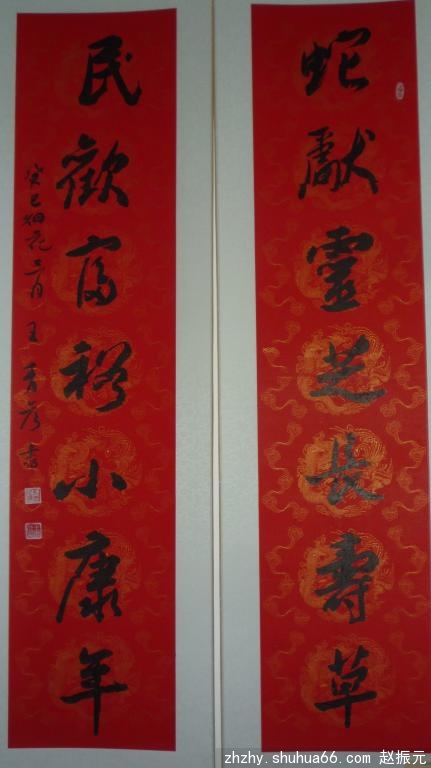 蛇獻靈芝長壽草
民歡富裕小康年
癸巳烟花三月王
zhzhy.shuhua66.com 赵振元